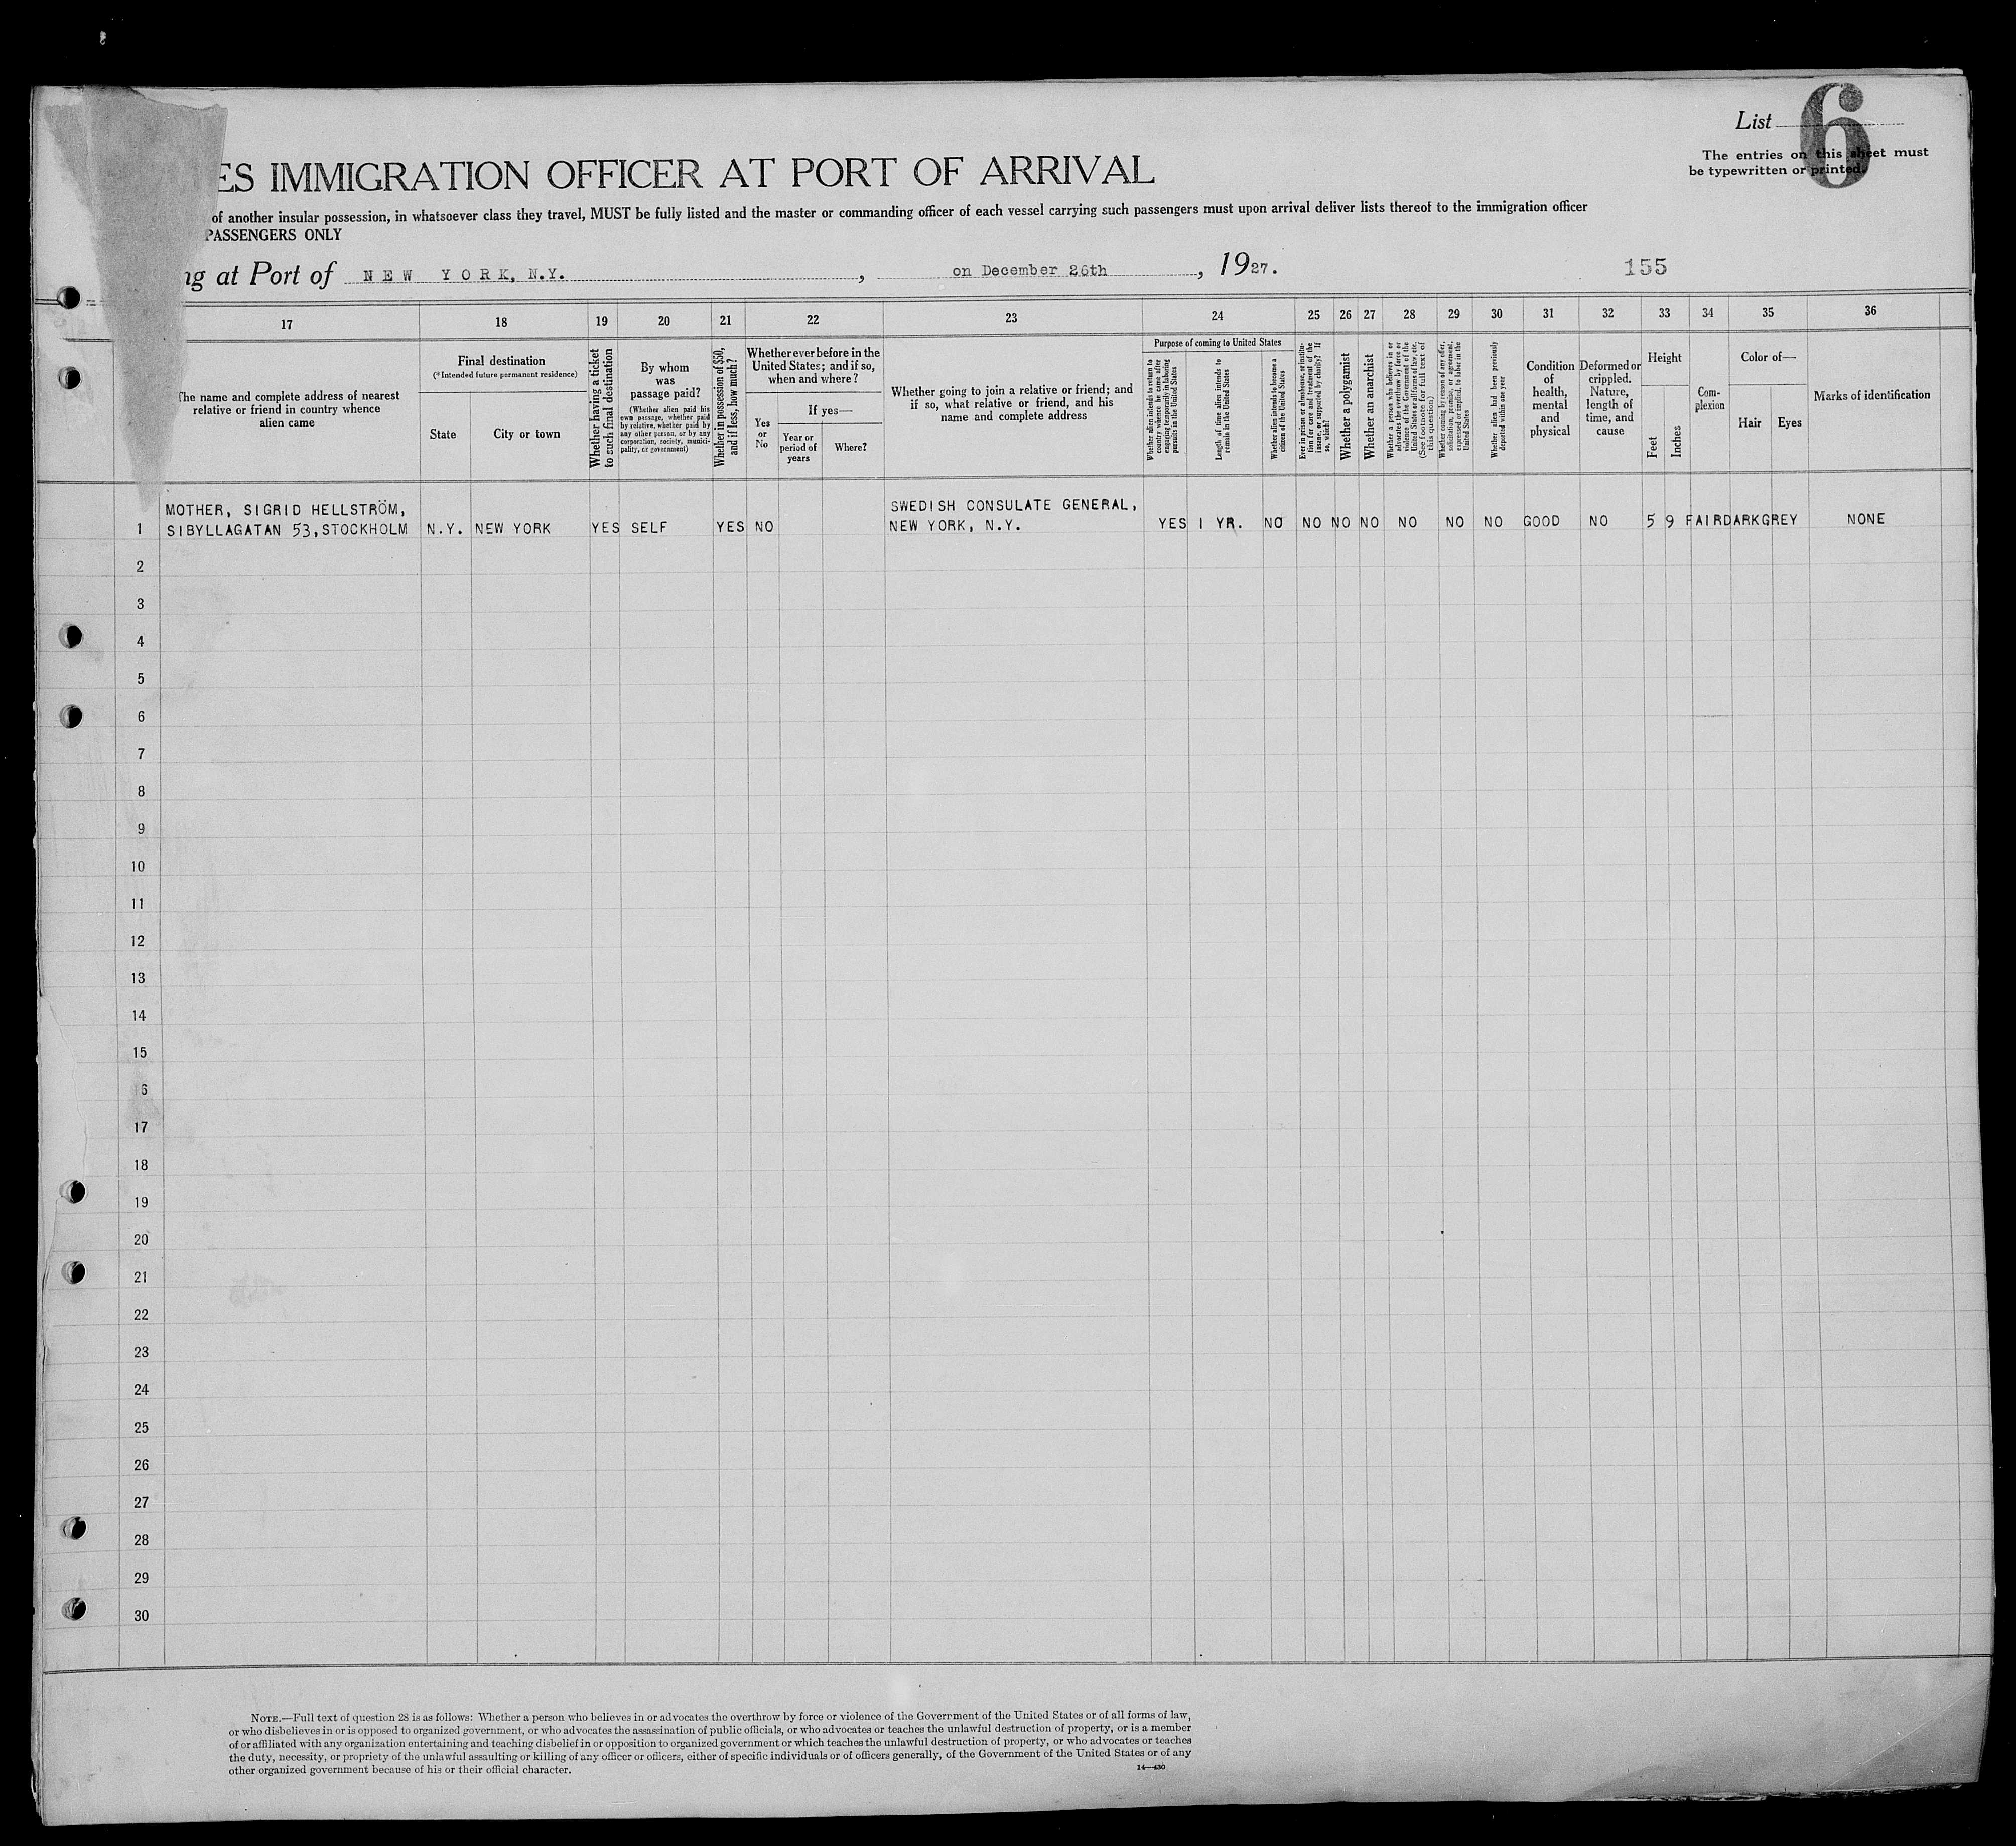 List 6
The entries on this sheet must
be typewritten or printed.
ES IMMIGRATION OFFICER AT PORT OF ARRIVAL
of another insular possession, in whatsoever class they travel, MUST be fully listed and the master or commanding officer of each vessel carrying such passengers must upon arrival deliver lists thereof to the immigration officer
PASSENGERS ONLY
ng at Port of NEW YORK, N.Y. , on December 26th , 1927.
155
17 18 19 20 21 22 23 24 25 26 27 28 29 30 31 32 33 34 35 36
The name and complete address of nearest
relative or friend in country whence
alien came
Final destination
(*Intended future permanent residence)
State
City or town
Whether having a ticket
to such final destination
By whom
was
passage paid?
(Whether alien paid his
own passage, whether paid
by relative, whether paid by
any other person, or by any
corporation, society, munici-
pality, or government)
Whether in possession of $50,
and if less, how much?
Whether ever before in the
United States; and if so,
when and where?
Yes
or
No
If yes—
Year or
period of
years
Where?
Whether going to join a relative or friend; and
if so, what relative or friend, and his
name and complete address
Purpose of coming to United States
Whether alien intends to return to
country whence he came after
engaging temporarily in laboring
pursuits in the United States
Length of time alien intends to
remain in the United States
Whether alien intends to become a
citizen of the United States
Ever in prison or almshouse, or institu-
tion for care and treatment of the
insane, or supported by charity? If
so, which?
Whether a polygamist
Whether an anarchist
Whether a person who believes in or
advocates the overthrow by force or
violence of the Government of the
United States or all forms of law, etc.
(See footnote for full text of
this question)
Whether coming by reason of any offer,
solicitation, promise, or agreement,
expressed or implied, to labor in the
United States
Whether alien had been previously
deported within one year
Condition
of
health,
mental
and
physical
Deformed or
crippled.
Nature,
length of
time, and
cause
Height
Feet
Inches
Com-
plexion
Color of—
Hair
Eyes
Marks of identification
MOTHER, SIGRID HELLSTRÖM,
SWEDISH CONSULATE GENERAL,
1 SIBYLLAGATAN 53,STOCKHOLM N.Y. NEW YORK YES SELF YES NO NEW YORK, N.Y. YES 1 YR. NO NO NO NO NO NO NO GOOD NO 5 9 FAIR DARK GREY NONE
2
3
4
5
6
7
8
9
10
11
12
13
14
15
6
17
18
19
20
21
22
23
24
25
26
27
28
29
30
NOTE.—Full text of question 28 is as follows: Whether a person who believes in or advocates the overthrow by force or violence of the Government of the United States or of all forms of law,
or who disbelieves in or is opposed to organized government, or who advocates the assassination of public officials, or who advocates or teaches the unlawful destruction of property, or is a member
of or affiliated with any organization entertaining and teaching disbelief in or opposition to organized government or which teaches the unlawful destruction of property, or who advocates or teaches
the duty, necessity, or propriety of the unlawful assaulting or killing of any officer or officers, either of specific individuals or of officers generally, of the Government of the United States or of any
other organized government because of his or their official character.
14—430